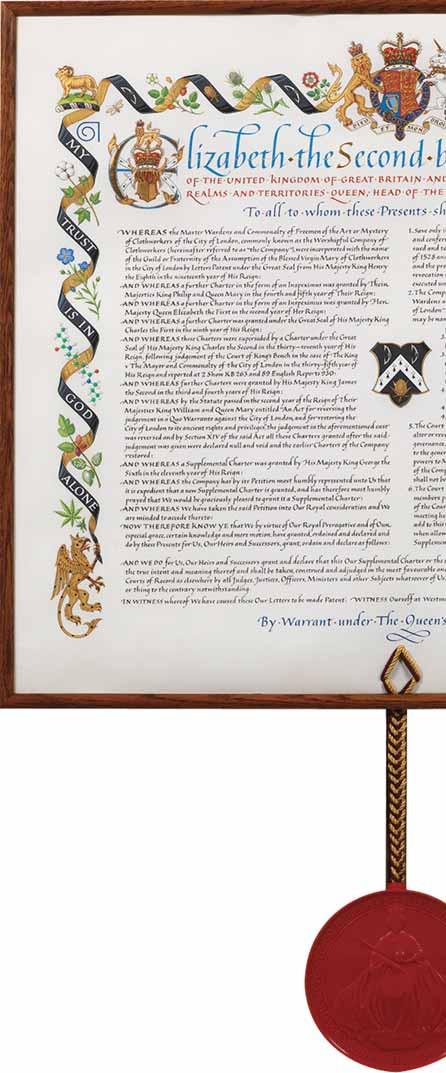 Elizabeth·the·Second·b
OF·THE·UNITED·KINGDOM·OF·GREAT·BRITAIN·AND
REALMS·AND·TERRITORIES·QUEEN, HEAD·OF·THE
To·all·to·whom·these·Presents·sh
MY
TRUST
IS IN
GOD
ALONE
WHEREAS the Master Wardens and Commonalty of Freemen of the Art or Mystery
of Clothworkers of the City of London, commonly known as the Worshipful Company of
Clothworkers (hereinafter referred to as "the Company") were incorporated with the name
of the Guild or Fraternity of the Assumption of the Blessed Virgin Mary of Clothworkers
in the City of London by Letters Patent under the Great Seal from His Majesty King Henry
the Eighth in the nineteenth year of His Reign:
AND WHEREAS a further Charter in the form of an Inspeximus was granted by Their
Majesties King Philip and Queen Mary in the fourth and fifth year of Their Reign:
AND WHEREAS a further Charter in the form of an Inspeximus was granted by Her
Majesty Queen Elizabeth the First in the second year of Her Reign:
AND WHEREAS a further Charter was granted under the Great Seal of His Majesty King
Charles the First in the ninth year of His Reign:
AND WHEREAS these Charters were superseded by a Charter under the Great
Seal of His Majesty King Charles the Second in the thirty-seventh year of His
Reign, following judgement of the Court of King's Bench in the case of The King
v The Mayor and Commonalty of the City of London in the thirty-fifth year of
His Reign and reported at 2 Show KB 263 and 89 English Reports 930:
AND WHEREAS further Charters were granted by His Majesty King James
the Second in the third and fourth years of His Reign:
AND WHEREAS by the Statute passed in the second year of the Reign of Their
Majesties King William and Queen Mary entitled "An Act for reversing the
judgement in a Quo Warranto against the City of London, and for restoring the
City of London to its ancient rights and privileges", the judgement in the aforementioned case
was reversed and by Section XIV of the said Act all those Charters granted after the said
judgement was given were declared null and void and the earlier Charters of the Company
restored:
AND WHEREAS a Supplemental Charter was granted by His Majesty King George the
Sixth in the eleventh year of His Reign:
AND WHEREAS the Company has by its Petition most humbly represented unto Us that
it is expedient that a new Supplemental Charter is granted, and has therefore most humbly
prayed that We would be graciously pleased to grant it a Supplemental Charter:
AND WHEREAS We have taken the said Petition into Our Royal consideration and We
are minded to accede thereto:
NOW THEREFORE KNOW YE that We by virtue of Our Royal Prerogative and of Our
especial grace, certain knowledge and mere motion, have granted, ordained and declared and
do by these Presents for Us, Our Heirs and Successors, grant, ordain and declare as follows:
1. Save only i
and confer
of 1528 an
and the pro
revocation
executed un
2. The Comp
Wardens a
of London"
may be nam
5. The Court
alter or rev
governance,
to the gener
powers to M
of the Comp
shall not be
6. The Court
members
of the Cour
meeting he
add to this
when allow
Supplemen
AND WE DO for Us, Our Heirs and Successors grant and declare that this Our Supplemental Charter or the
the true intent and meaning thereof and shall be taken, construed and adjudged in the most favourable and
Courts of Record as elsewhere by all Judges, Justices, Officers, Ministers and other Subjects whatsoever of Us,
or thing to the contrary notwithstanding.
IN WITNESS whereof We have caused these Our Letters to be made Patent: WITNESS Ourself at Westm
By·Warrant·under·The·Queen's